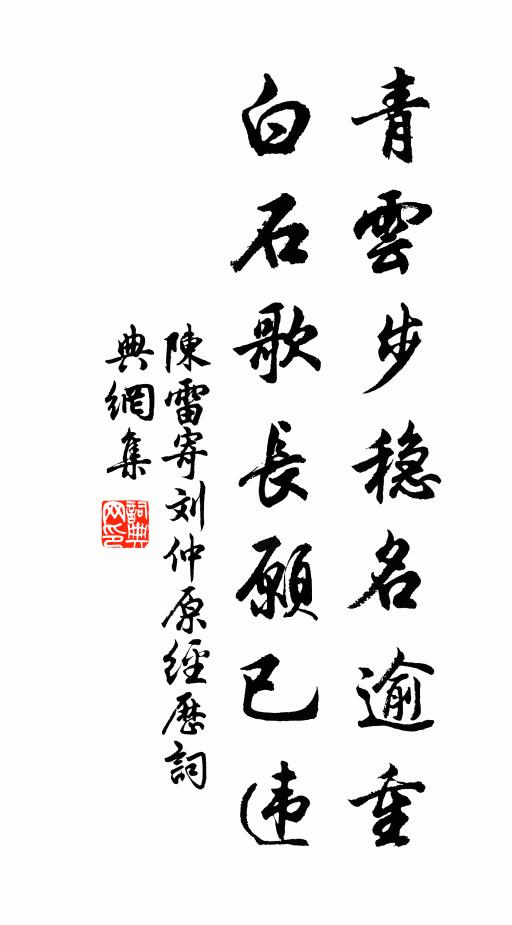 青雲步稳名逾重
白石歌長願已违
陳雷寄刘仲原經歷詞
典網集
詞典网印